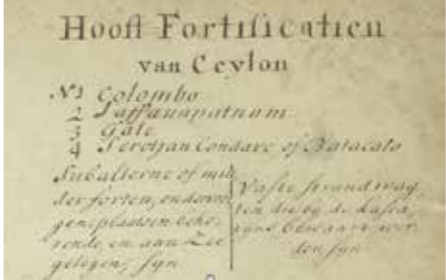 Hooft Fortificatien
van Ceylon
N 1 Colombo
2 Jaffanapatnam
3 Gale
4 Of Batacalo
Subalterne of min
der forten, onder
gen plaatsen beho
rende, en aan Zee
gelegen, Syn
Vaste strand wag
ten die by de Lasca
ryns bewaart wer
den Syn